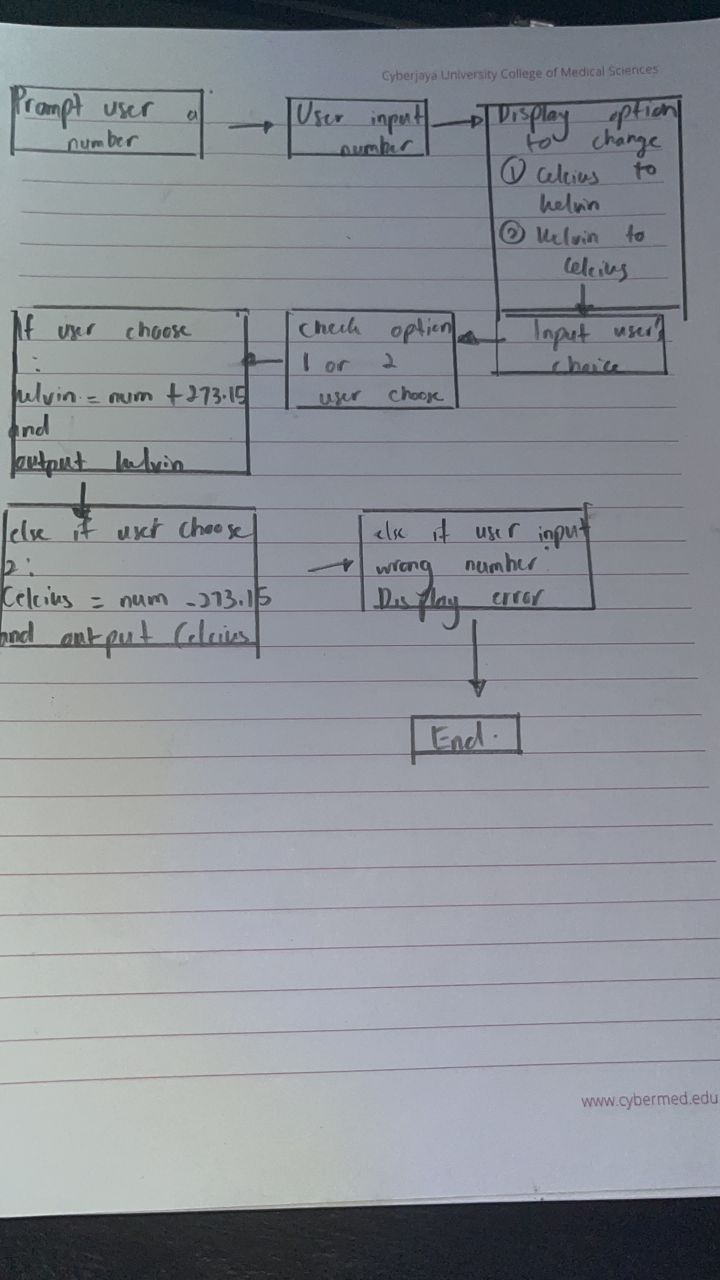 Cyberjaya University College of Medical Sciences
Prompt user a
number
User input
number
Display option
to change
① Celcius to
kelvin
② Kelvin to
Celcius
Input user's
choice
Check option
1 or 2
user choose
If user choose
:
kelvin = num + 273.15
and
output kelvin
else if user choose
2:
Celcius = num - 273.15
and output Celcius
else if user input
wrong number.
Display error
End.
www.cybermed.edu